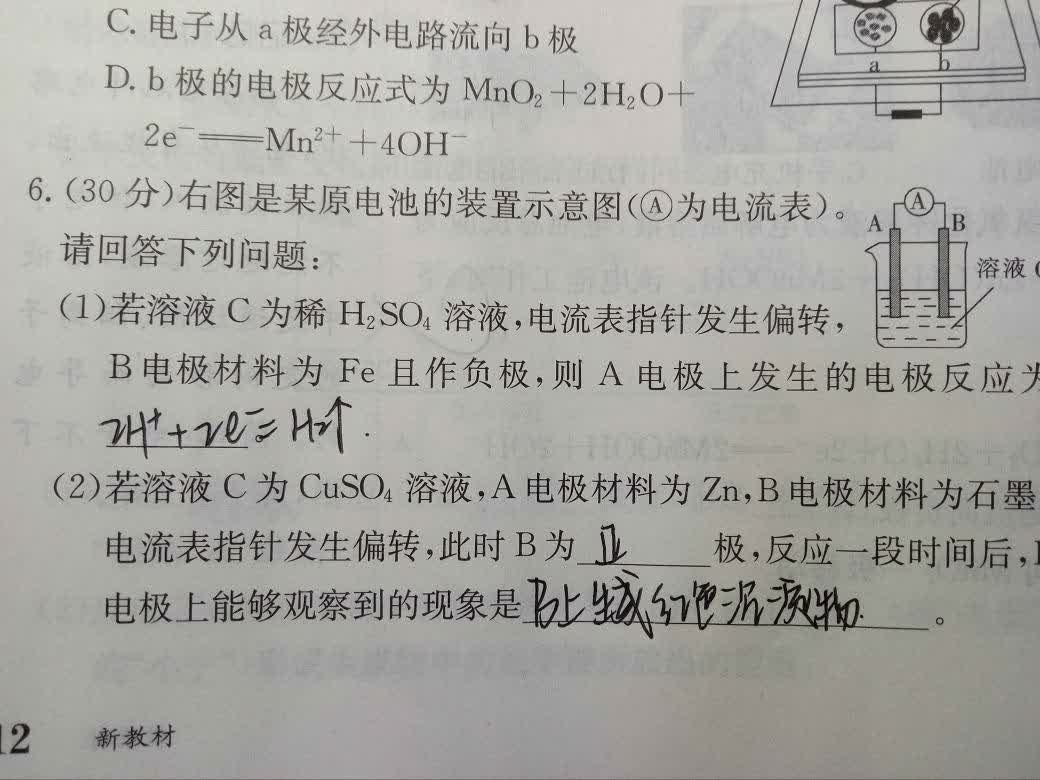 C. 电子从 a 极经外电路流向 b 极
D. b 极的电极反应式为 MnO₂+2H₂O+
2e⁻══Mn²⁺+4OH⁻
a b
6. (30 分)右图是某原电池的装置示意图(Ⓐ为电流表)。
请回答下列问题:
A Ⓐ B
溶液
(1)若溶液 C 为稀 H₂SO₄ 溶液,电流表指针发生偏转,
B 电极材料为 Fe 且作负极,则 A 电极上发生的电极反应为
2H⁺+2e⁻=H₂↑.
(2)若溶液 C 为 CuSO₄ 溶液,A 电极材料为 Zn,B 电极材料为石墨
电流表指针发生偏转,此时 B 为 正 极,反应一段时间后,
电极上能够观察到的现象是 B上生成红色沉淀物. 。
12 新教材